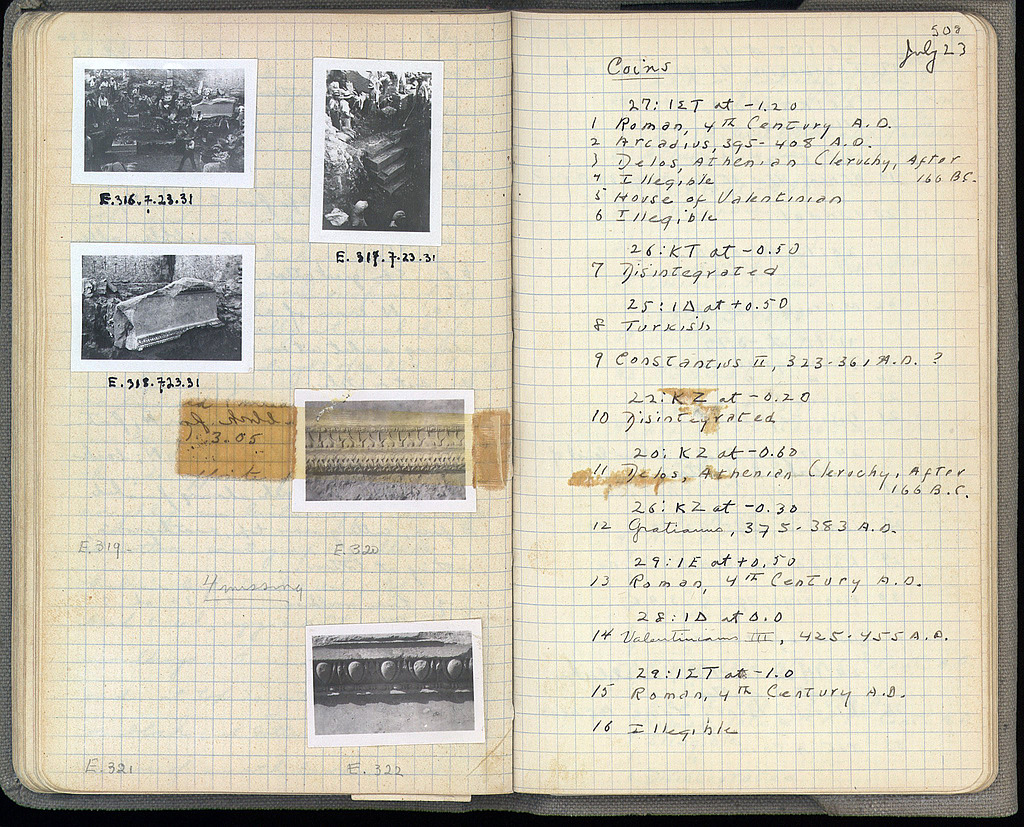 E.316.7.23.31
E.317.7.23.31
E.318.7.23.31
3.05
E.319-
E.320
4 missing
E.321
E.322
508
July 23
Coins
27: ΙΣΤ at -1.20
1 Roman, 4th Century A.D.
2 Arcadius, 395-408 A.D.
3 Delos, Athenian Cleruchy, After
166 BC.
4 Illegible
5 House of Valentinian
6 Illegible
26: ΚΤ at -0.50
7 Disintegrated
25: ΙΔ at +0.50
8 Turkish
9 Constantius II, 323-361 A.D. ?
22: ΚΖ at -0.20
10 Disintegrated
20: ΚΖ at -0.60
11 Delos, Athenian Cleruchy, After
166 B.C.
26: ΚΖ at -0.30
12 Gratianus, 375-383 A.D.
29: ΙΕ at +0.50
13 Roman, 4th Century A.D.
28: ΙΔ at 0.0
14 Valentinianus III, 425-455 A.D.
29: ΙΣΤ at -1.0
15 Roman, 4th Century A.D.
16 Illegible